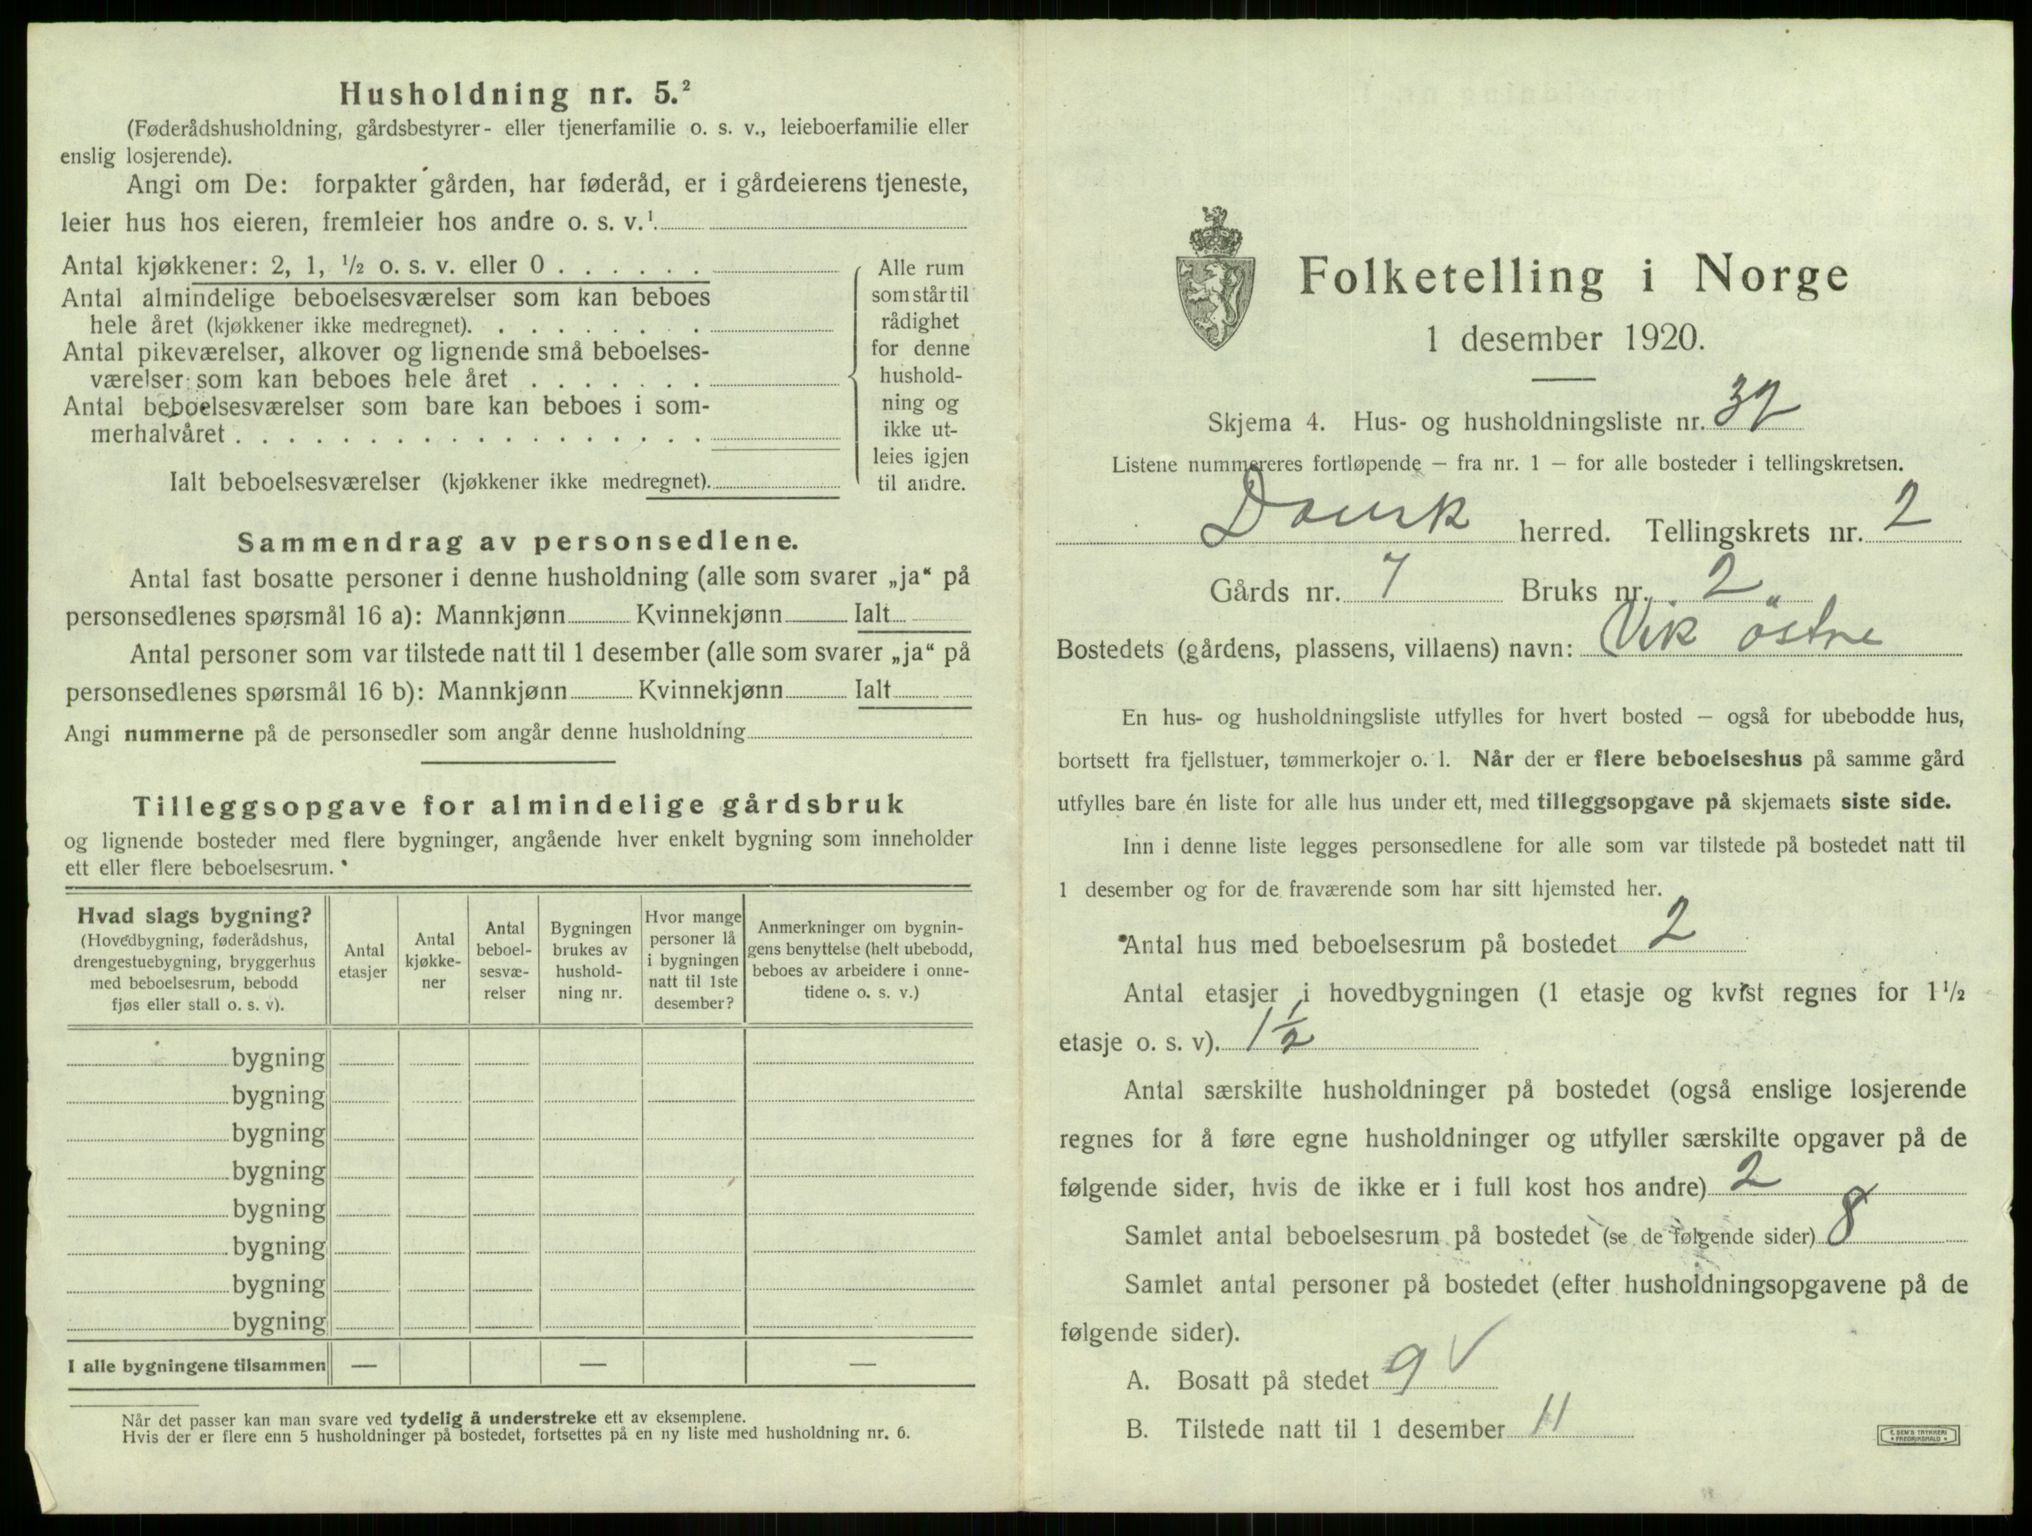 Husholdning nr. 5.²
(Føderådshusholdning, gårdsbestyrer- eller tjenerfamilie o. s. v., leieboerfamilie eller
enslig losjerende).
Angi om De: forpakter gården, har føderåd, er i gårdeierens tjeneste,
leier hus hos eieren, fremleier hos andre o. s. v.¹
Antal kjøkkener: 2, 1, ½ o. s. v. eller 0 . . . . . .
Antal almindelige beboelsesværelser som kan beboes
hele året (kjøkkener ikke medregnet). . . . . . . . .
Antal pikeværelser, alkover og lignende små beboelses-
værelser som kan beboes hele året . . . . . . .
Antal beboelsesværelser som bare kan beboes i som-
merhalvåret . . . . . . . . . . . . . . . . . .
Ialt beboelsesværelser (kjøkkener ikke medregnet).
Alle rum
som står til
rådighet
for denne
hushold-
ning og
ikke ut-
leies igjen
til andre.
Sammendrag av personsedlene.
Antal fast bosatte personer i denne husholdning (alle som svarer „ja“ på
personsedlenes spørsmål 16 a): Mannkjønn Kvinnekjønn Ialt
Antal personer som var tilstede natt til 1 desember (alle som svarer „ja“ på
personsedlenes spørsmål 16 b): Mannkjønn Kvinnekjønn Ialt
Angi nummerne på de personsedler som angår denne husholdning
Tilleggsopgave for almindelige gårdsbruk
og lignende bosteder med flere bygninger, angående hver enkelt bygning som inneholder
ett eller flere beboelsesrum.
Hvad slags bygning?
(Hovedbygning, føderådshus,
drengestuebygning, bryggerhus
med beboelsesrum, bebodd
fjøs eller stall o. s. v).
Antal
etasjer
Antal
kjøkke-
ner
Antal
beboel-
sesvæ-
relser
Bygningen
brukes av
hushold-
ning nr.
Hvor mange
personer lå
i bygningen
natt til 1ste
desember?
Anmerkninger om bygnin-
gens benyttelse (helt ubebodd,
beboes av arbeidere i onne-
tidene o. s. v.)
bygning
bygning
bygning
bygning
bygning
bygning
bygning
bygning
I alle bygningene tilsammen — — —
Når det passer kan man svare ved tydelig å understreke ett av eksemplene.
Hvis der er flere enn 5 husholdninger på bostedet, fortsettes på en ny liste med husholdning nr. 6.
Folketelling i Norge
1 desember 1920.
Skjema 4. Hus- og husholdningsliste nr. 32
Listene nummereres fortløpende — fra nr. 1 — for alle bosteder i tellingskretsen.
herred. Tellingskrets nr. 2
Gårds nr. 7 Bruks nr. 2
Bostedets (gårdens, plassens, villaens) navn: Vik östre
En hus- og husholdningsliste utfylles for hvert bosted — også for ubebodde hus,
bortsett fra fjellstuer, tømmerkojer o. l. Når der er flere beboelseshus på samme gård
utfylles bare én liste for alle hus under ett, med tilleggsopgave på skjemaets siste side.
Inn i denne liste legges personsedlene for alle som var tilstede på bostedet natt til
1 desember og for de fraværende som har sitt hjemsted her.
Antal hus med beboelsesrum på bostedet 2
Antal etasjer i hovedbygningen (1 etasje og kvist regnes for 1½
etasje o. s. v). 1½
Antal særskilte husholdninger på bostedet (også enslige losjerende
regnes for å føre egne husholdninger og utfyller særskilte opgaver på de
følgende sider, hvis de ikke er i full kost hos andre) 2
Samlet antal beboelsesrum på bostedet (se de følgende sider) 8
Samlet antal personer på bostedet (efter husholdningsopgavene på de
følgende sider).
A. Bosatt på stedet 9 √
B. Tilstede natt til 1 desember 11
E. SEM'S TRYKKERI
FREDRIKSHALD